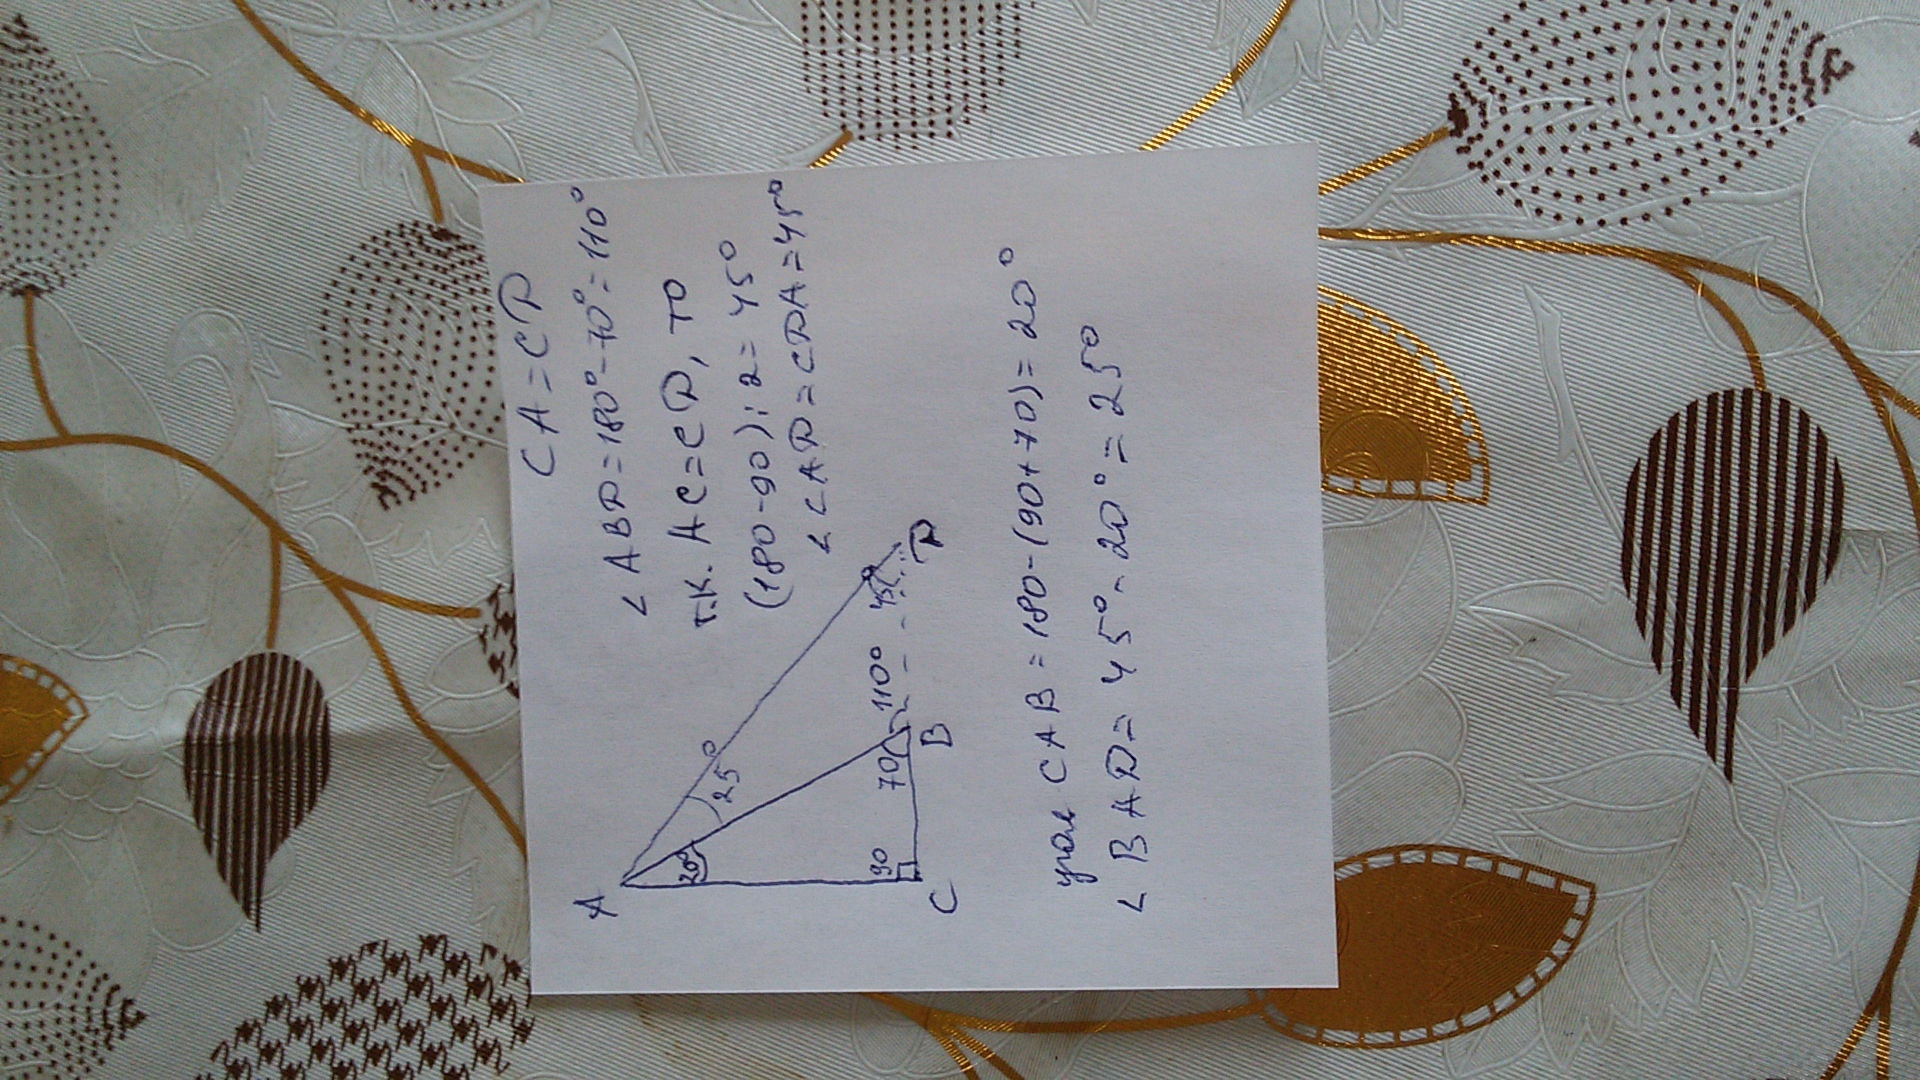 CA = CD
∠ ABD = 180° - 70° = 110°
т.к. AC = CD, то
(180 - 90) : 2 = 45°
∠ CAD = CDA = 45°
A
20°
25°
90
70
110°
45°
C
B
D
угол CAB = 180 - (90 + 70) = 20°
∠ BAD = 45° - 20° = 25°